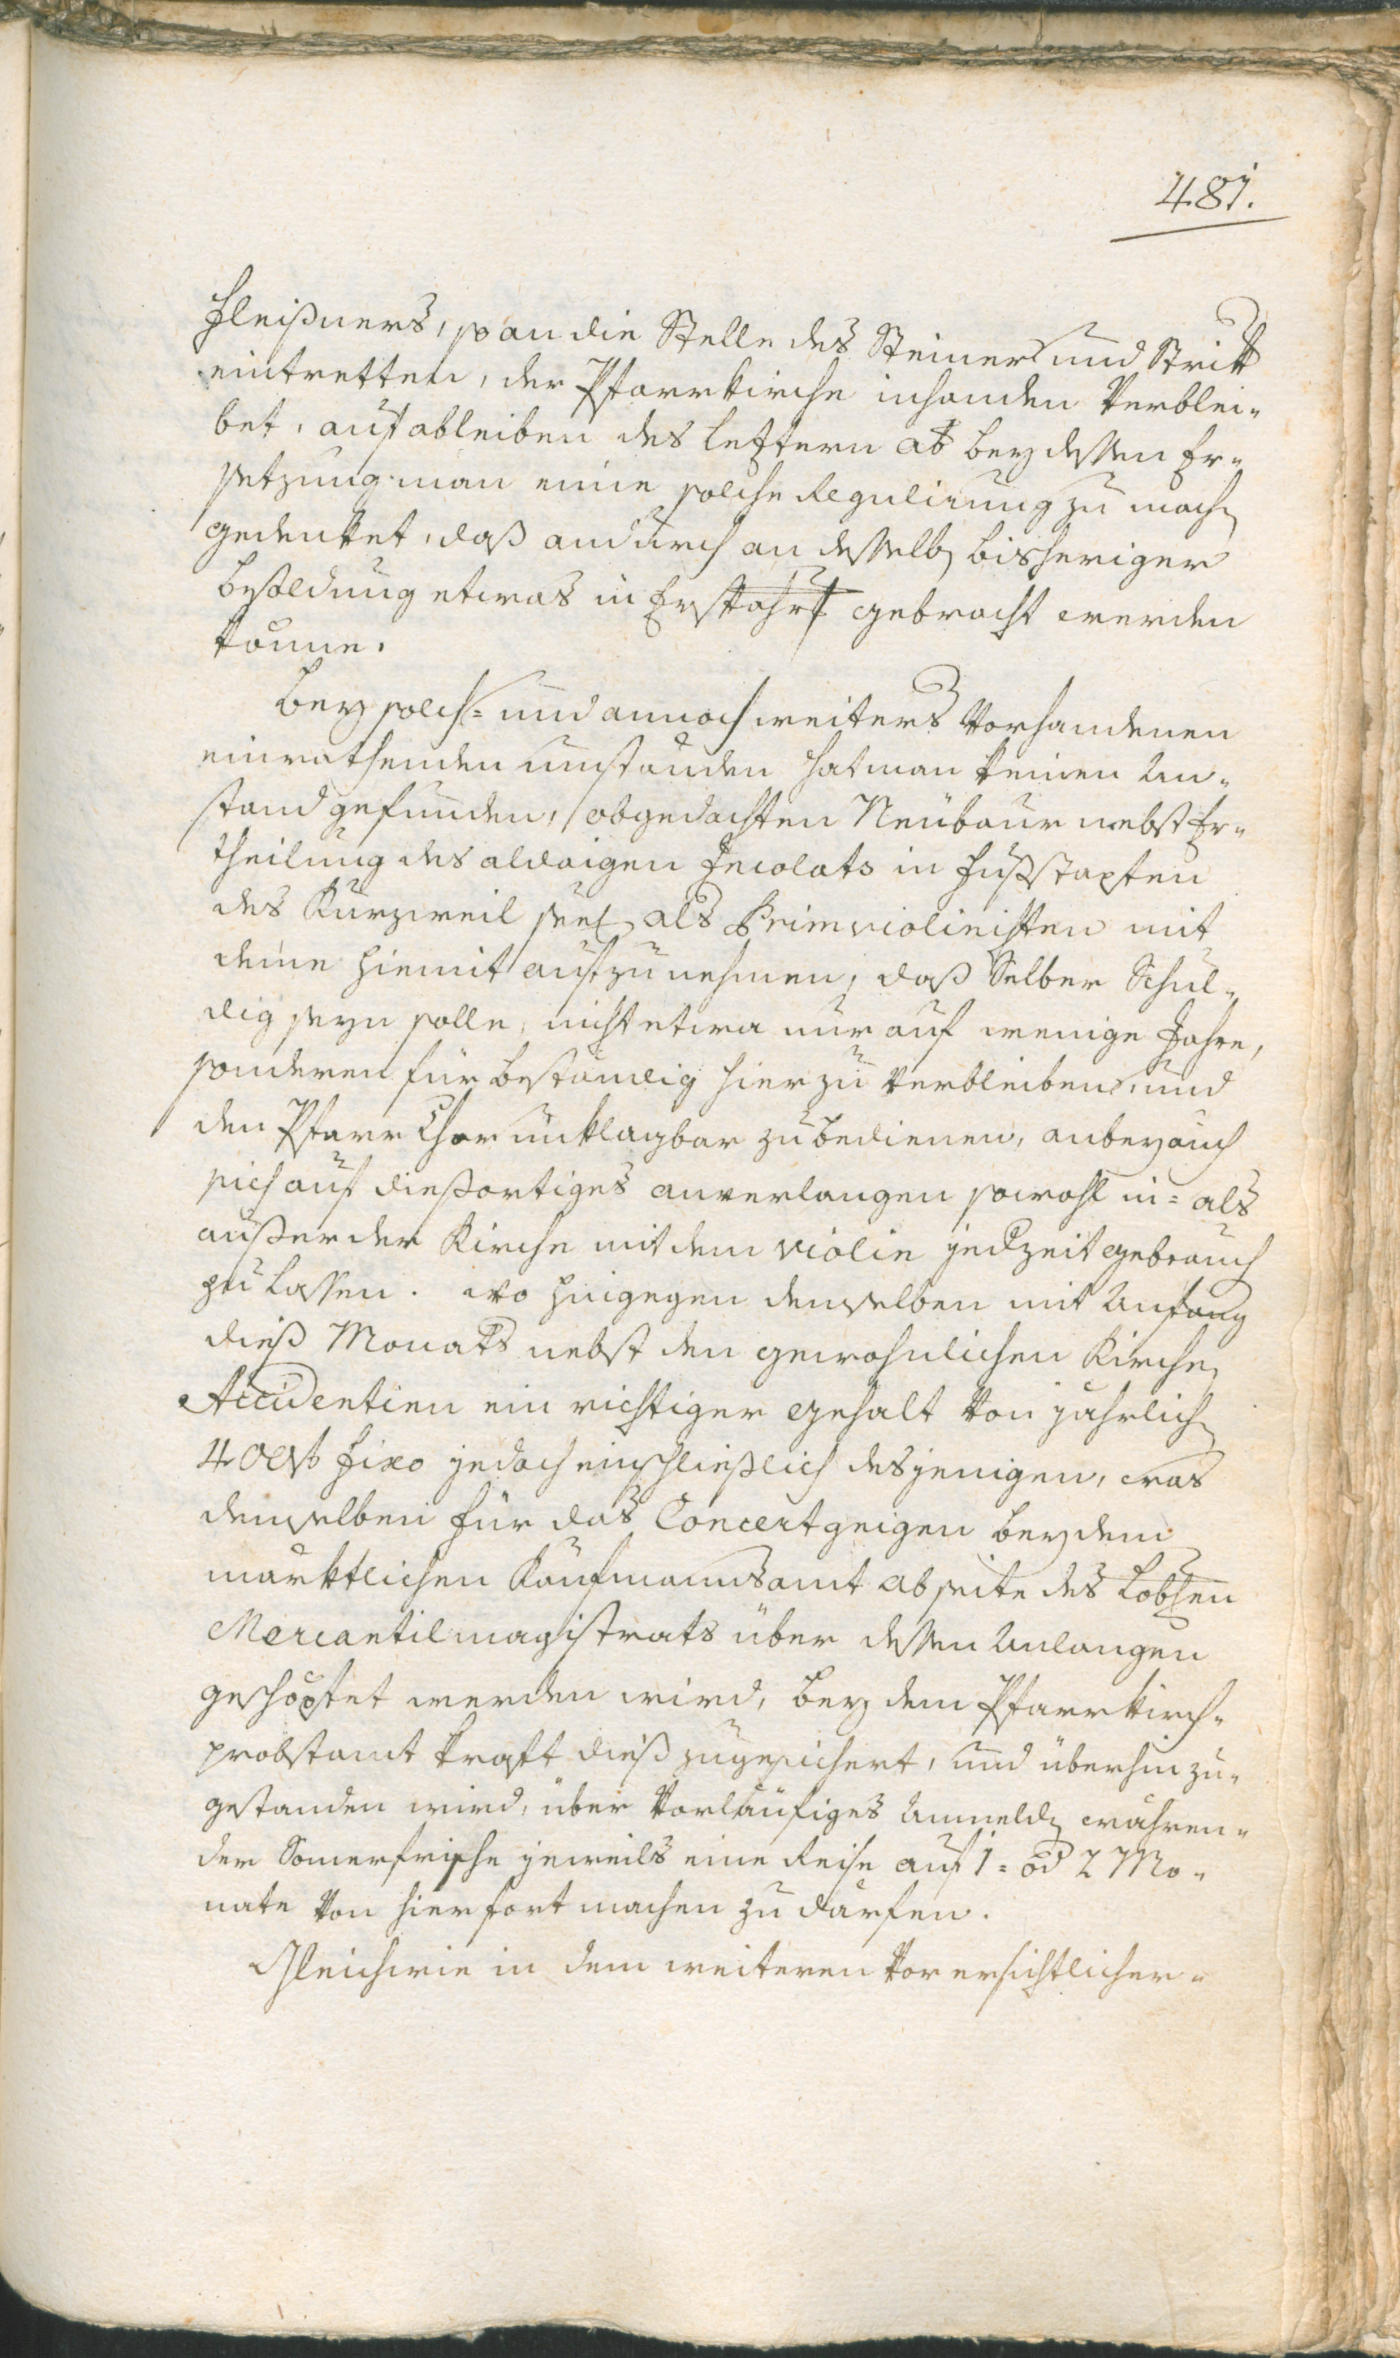 481.
Fleißners, so an die Stelle des Steiner und Stritt
eintretten, der Pfarrkirche inhanden Verblei-
bet, auf ableiben des leztern ab bey dessen Er-
setzung man eine solche Regulirung zu mach
gedenket, daß andurch an desselb bisheriger
besoldung etwas in Ersparung gebracht werden
könne.
Bey solch= und annoch weiters Vorhandenen
einrathenden umständen hat man keinen An-
stand gefunden, obgedachten Neubaur nebst Er-
theilung des aldaigen Incolats in Fußstapfen
des Kurzweil seel. als Primviolinisten mit
deme hiemit aufzunehmen, daß Selber Schul-
dig seyn solle, nicht etwa nur auf wenige Jahre,
sonderen für beständig hier zu verbleiben, und
den Pfarr Chor unklagbar zu bedienen, anbey auch
sich auf dießortiges anverlangen sowohl in= als
außer der Kirche mit dem Violin jedzeit gebrauch
zu lassen. wo hingegen demselben mit Anfang
dieß Monats nebst den gewohnlichen Kirche
Accidentien ein richtiger gehalt Von jährlich
400 f fixo jedoch einschließlich desjenigen, was
demselben für das Concertgeigen bey dem
marktlichen Kaufmannsamt abseite des Lobsen
Mercantilmagistrats über dessen Anlangen
geschöpfet werden wird, bey dem Pfarrkirch-
probstamt kraft dieß zugesichert, und überhin zu-
gestanden wird, über Vorläufiges Anmeld währen-
der Somerfrische jeweils eine Reise auf 1= od 2 Mo-
nate Von hier fort machen zu därfen.
Gleichwie in dem weiteren Vor ersichtlicher-